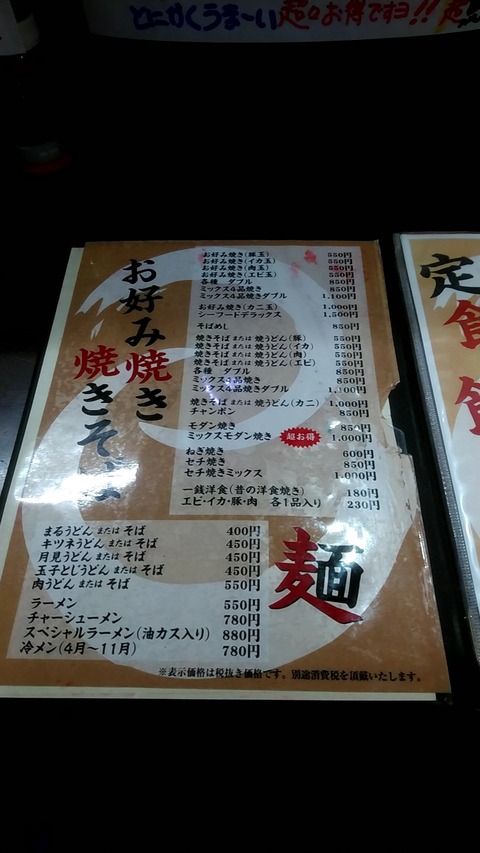 とにかくうま〜い超お得ですヨ!!
お好み焼き
焼きそば
お好み焼き(豚玉) 550円
お好み焼き(イカ玉) 550円
お好み焼き(肉玉) 550円
お好み焼き(エビ玉) 550円
各種 ダブル 850円
ミックス4品焼き 850円
ミックス4品焼きダブル 1,100円
お好み焼き(カニ玉) 1,000円
シーフードデラックス 1,500円
そばめし 850円
焼きそば または 焼うどん(豚) 550円
焼きそば または 焼うどん(イカ) 550円
焼きそば または 焼うどん(肉) 550円
焼きそば または 焼うどん(エビ) 550円
各種 ダブル 850円
ミックス4品焼き 850円
ミックス4品焼きダブル 1,100円
焼きそば または 焼うどん(カニ) 1,000円
チャンポン 850円
モダン焼き 850円
ミックスモダン焼き 超お得 1,000円
ねぎ焼き 600円
セチ焼き 850円
セチ焼きミックス 1,000円
一銭洋食(昔の洋食焼き) 180円
エビ・イカ・豚・肉 各1品入り 230円
麺
まるうどん または そば 400円
キツネうどん または そば 450円
月見うどん または そば 450円
玉子とじうどん または そば 450円
肉うどん または そば 550円
ラーメン 550円
チャーシューメン 780円
スペシャルラーメン(油カス入り) 880円
冷メン(4月〜11月) 780円
※表示価格は税抜き価格です。別途消費税を頂戴いたします。
定食